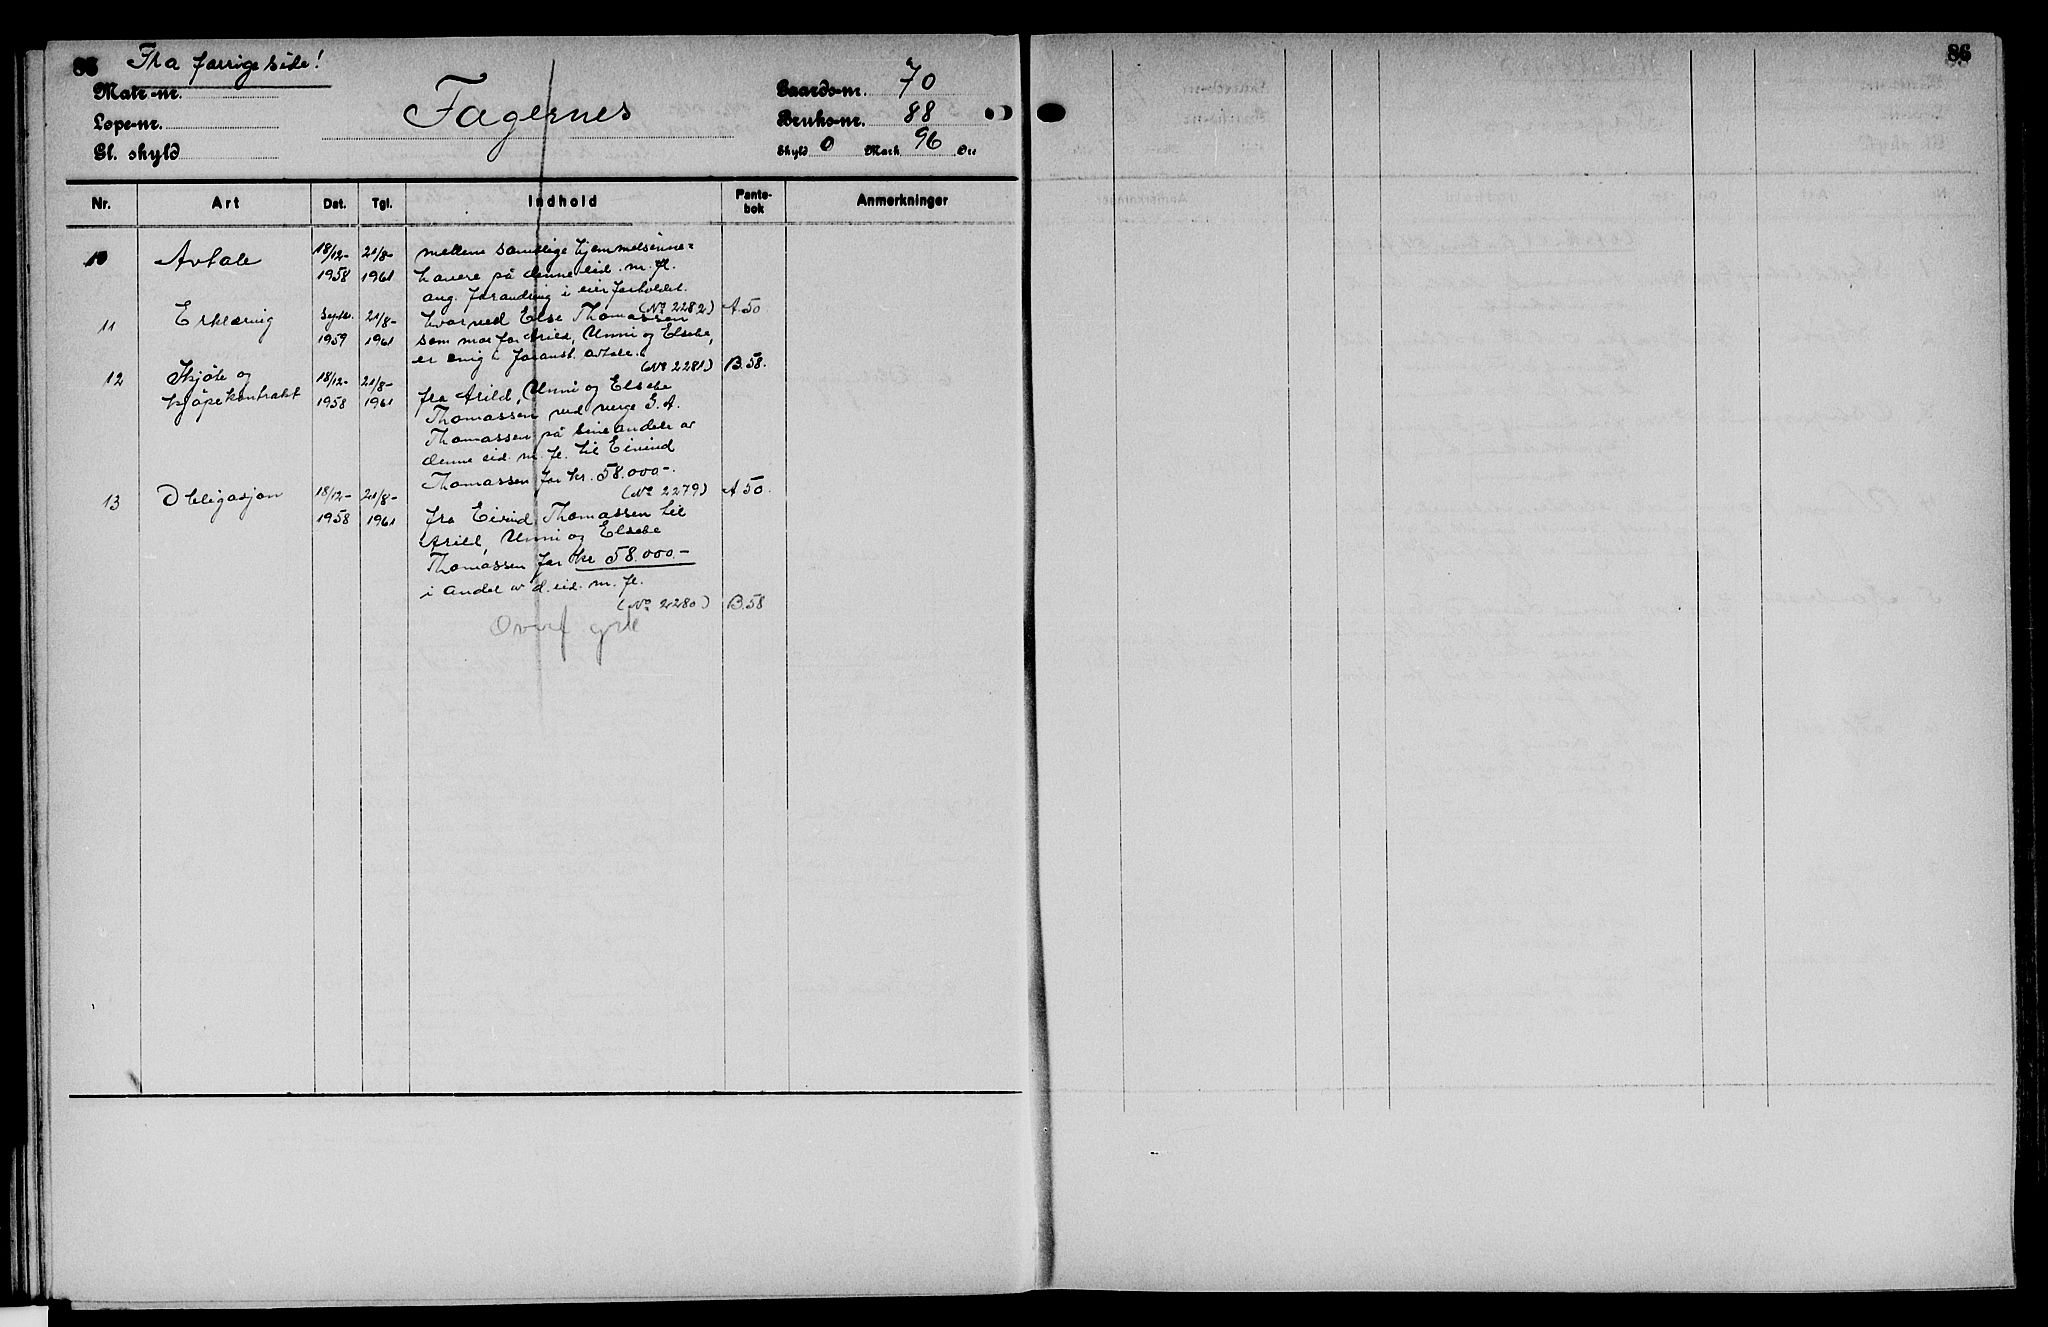 Fra forrige side!
Matr.-nr.
Løpe-nr.
Gl. skyld
Fagernes
Gaards-nr. 70
Bruks-nr. 88
Skyld 0 Mark 96 Øre
Nr. Art Dat. Tgl. Indhold Pante-bok Anmerkninger
10 Avtale 18/12- 1958 21/8- 1961 mellem samtlige hjemmelsinne=
havere på denne eid. m. fl.
ang. forandring i eierforholdet.
(No 2282) A 50
11 Erklæring Septr. 1959 21/8- 1961 hvorved Else Thomassen
som mor for Arild, Unni og Elsebe,
er enig i foranst. avtale.
(No 2281) B.58.
12 Skjøte og kjøpekontrakt 18/12- 1958 21/8- 1961 fra Arild, Unni og Elsebe
Thomassen ved verge G. A.
Thomassen på sine andele av
denne eid. m. fl. til Eivind
Thomassen for kr. 58.000-.
(No 2279) A 50.
13 Obligasjon 18/12- 1958 21/8- 1961 fra Eivind Thomassen til
Arild, Unni og Elsebe
Thomassen for kr 58.000.-
i andel av d. eid. m. fl.
(No 2280) B.58
Overf
86